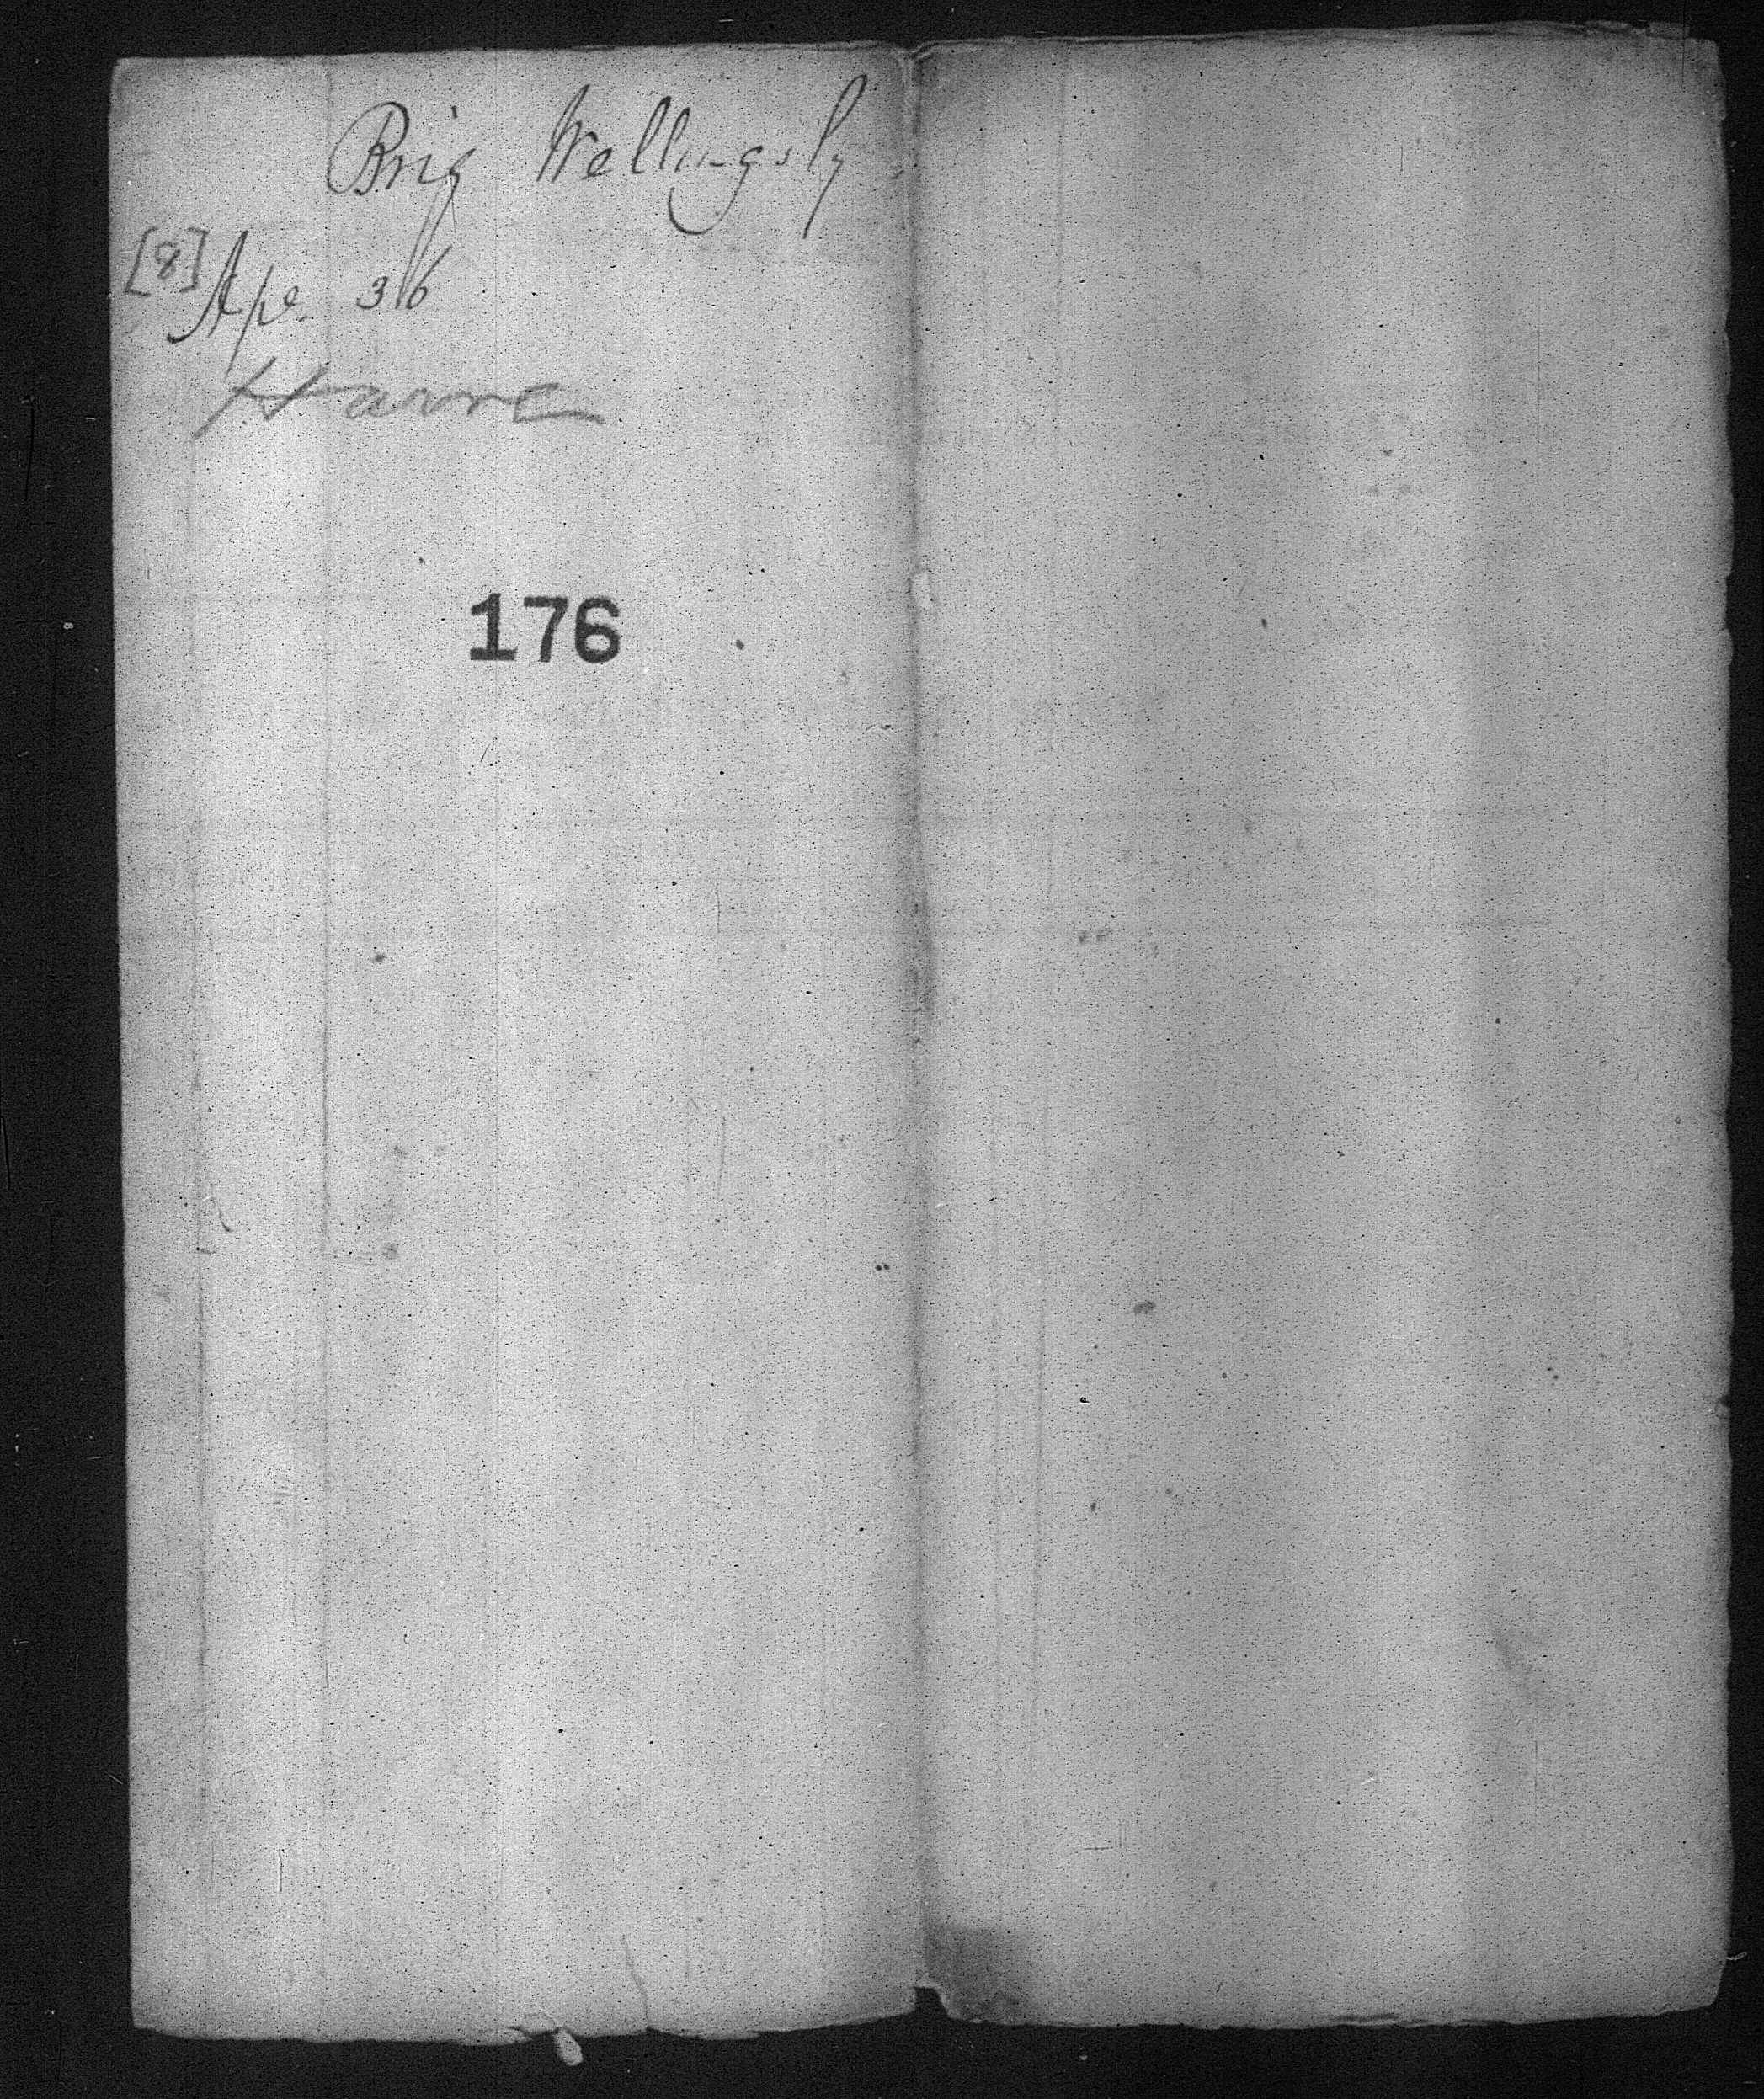 Brig Wellingsly
[8] Ape. 36
Havre
176